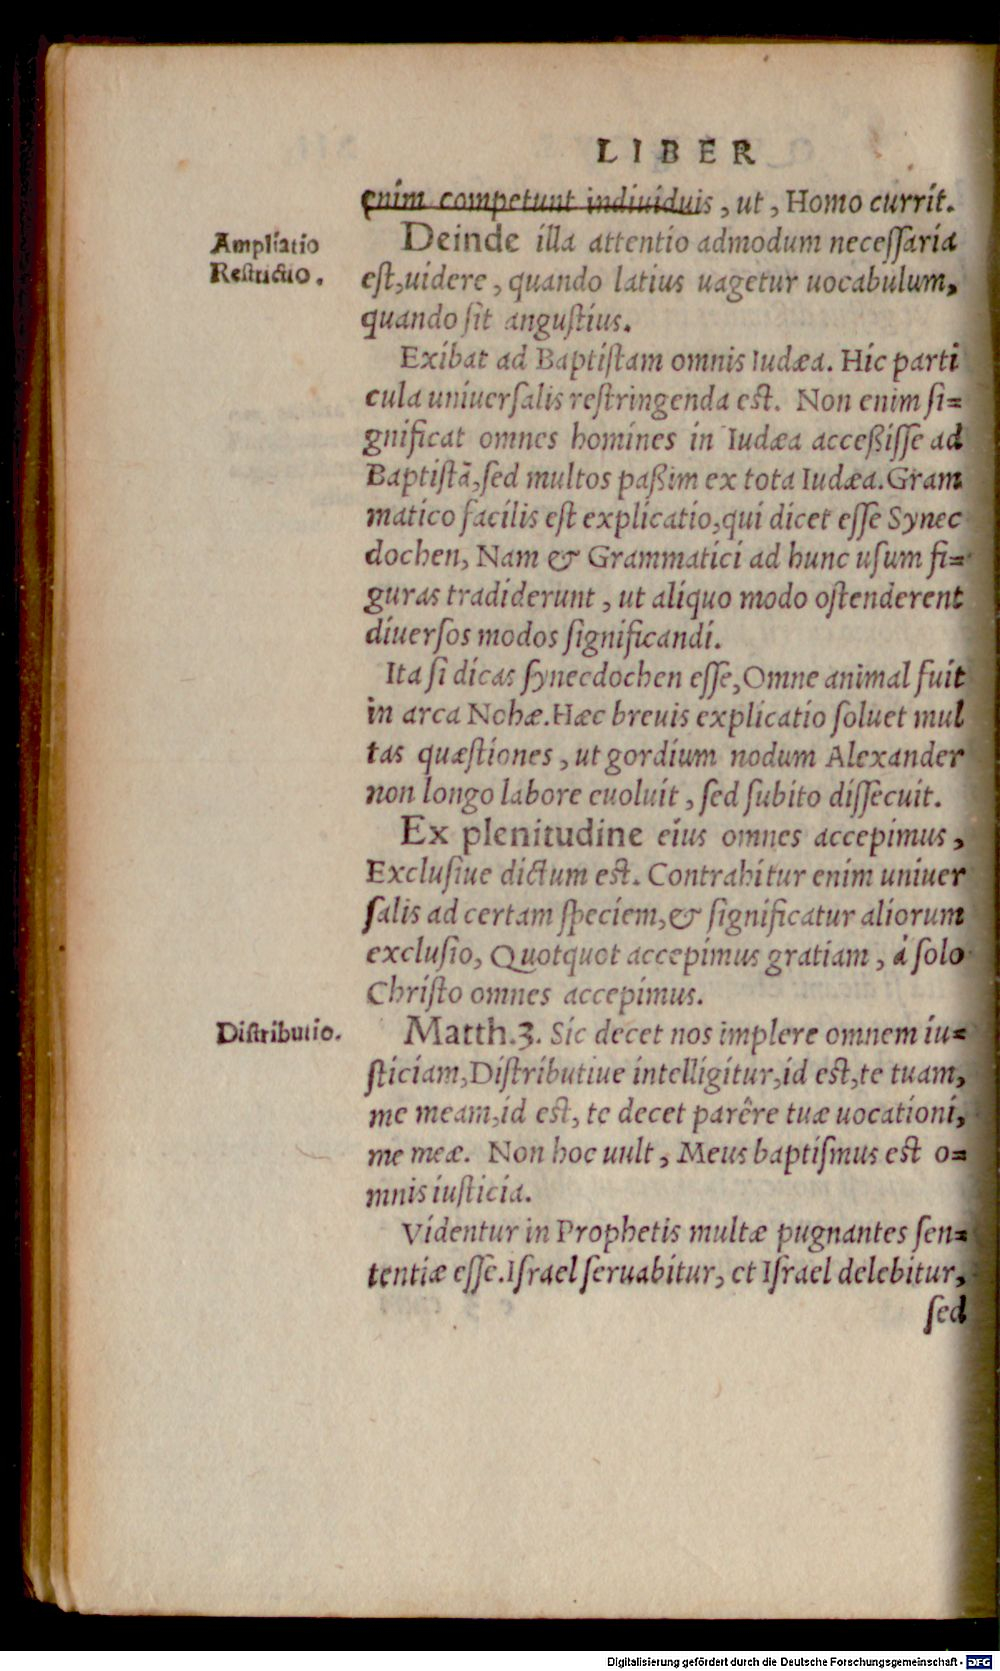 LIBER
enim competunt indiuiduis, ut, Homo currit.
Ampliatio
Restrictio.
Deinde illa attentio admodum necessaria
est, uidere, quando latius uagetur uocabulum,
quando sit angustius.
Exibat ad Baptistam omnis Iudæa. Hic parti
cula uniuersalis restringenda est. Non enim si=
gnificat omnes homines in Iudæa acceßisse ad
Baptistã, sed multos paßim ex tota Iudæa. Gram
matico facilis est explicatio, qui dicet esse Synec
dochen, Nam & Grammatici ad hunc usum fi=
guras tradiderunt, ut aliquo modo ostenderent
diuersos modos significandi.
Ita si dicas synecdochen esse, Omne animal fuit
in arca Nohæ. Hæc breuis explicatio soluet mul
tas quæstiones, ut gordium nodum Alexander
non longo labore euoluit, sed subito dissecuit.
Ex plenitudine eius omnes accepimus,
Exclusiue dictum est. Contrahitur enim uniuer
salis ad certam speciem, & significatur aliorum
exclusio, Quotquot accepimus gratiam, à solo
Christo omnes accepimus.
Distributio.
Matth.3. Sic decet nos implere omnem iu=
sticiam, Distributiue intelligitur, id est, te tuam,
me meam, id est, te decet parêre tuæ uocationi,
me meæ. Non hoc uult, Meus baptismus est o=
mnis iusticia.
Videntur in Prophetis multæ pugnantes sen=
tentiæ esse. Israel seruabitur, et Israel delebitur,
sed
Digitalisierung gefördert durch die Deutsche Forschungsgemeinschaft - DFG